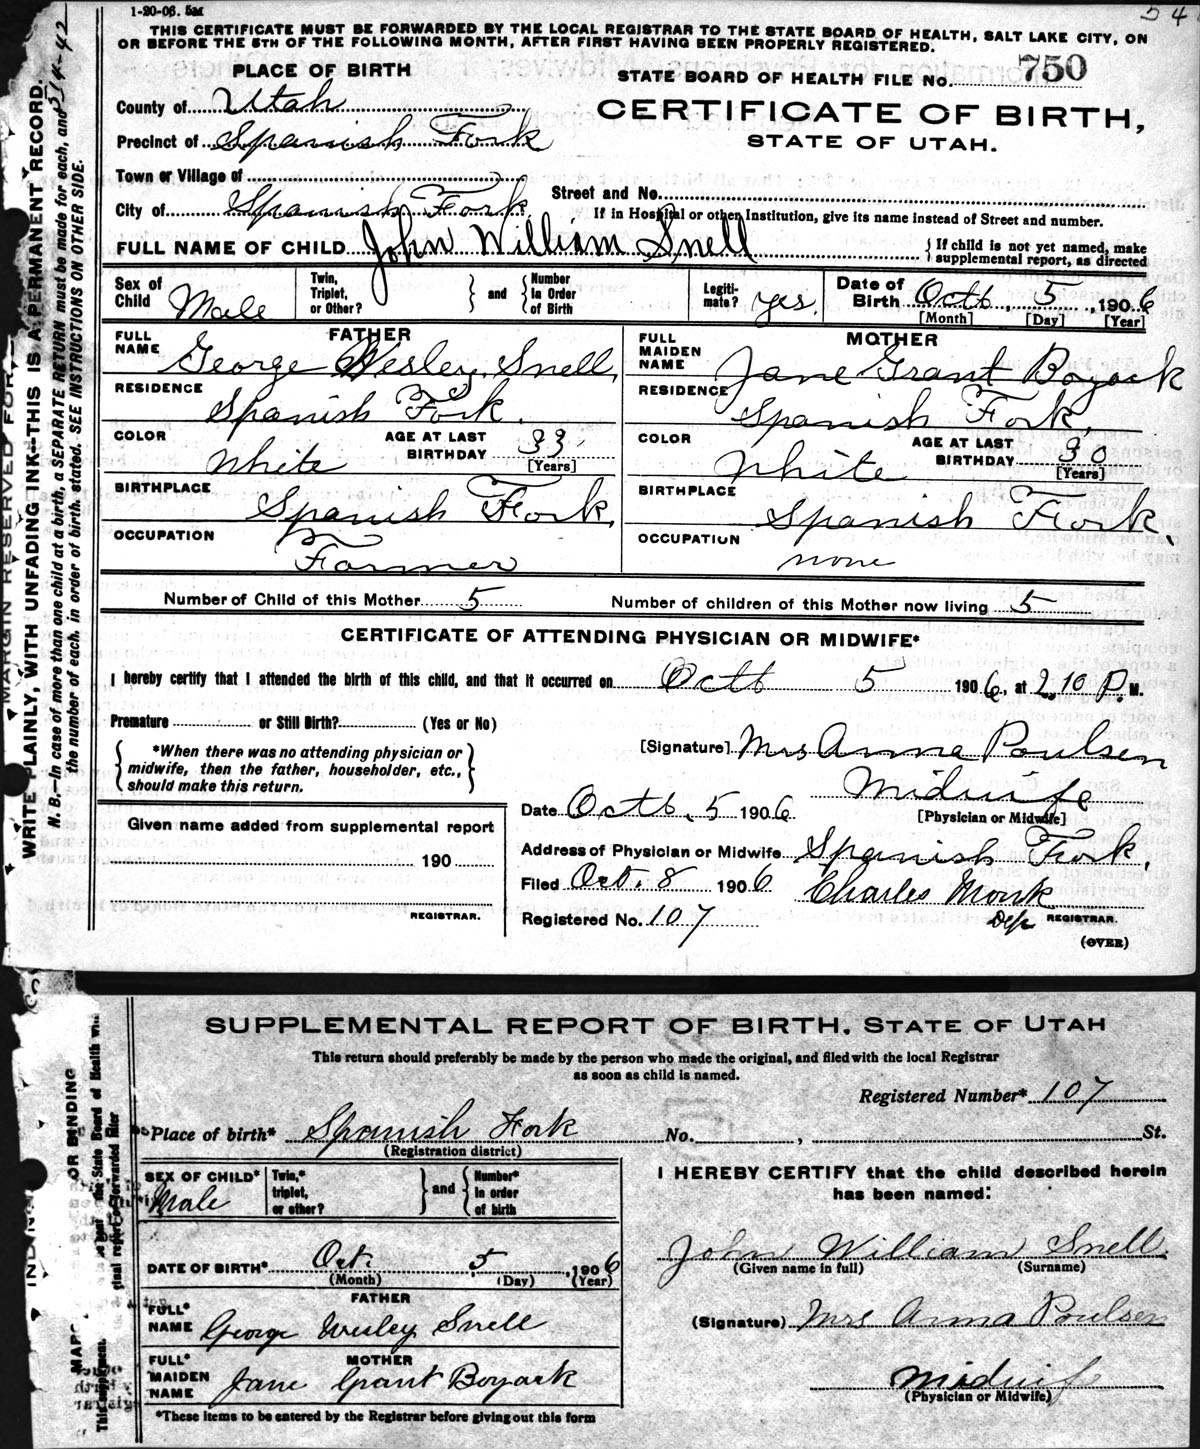 1-20-06. 5M
54
THIS CERTIFICATE MUST BE FORWARDED BY THE LOCAL REGISTRAR TO THE STATE BOARD OF HEALTH, SALT LAKE CITY, ON
OR BEFORE THE 5TH OF THE FOLLOWING MONTH, AFTER FIRST HAVING BEEN PROPERLY REGISTERED.
PLACE OF BIRTH
STATE BOARD OF HEALTH FILE No. 750
County of Utah
CERTIFICATE OF BIRTH,
Precinct of Spanish Fork
STATE OF UTAH.
Town or Village of
Street and No.
City of Spanish Fork
If in Hospital or other Institution, give its name instead of Street and number.
FULL NAME OF CHILD John William Snell
{ If child is not yet named, make
supplemental report, as directed
Sex of Child Male
Twin, Triplet, or Other?
} and {
Number In Order of Birth
Legiti-mate? yes.
Date of Birth Octb, 5, 1906
[Month] [Day] [Year]
FATHER
FULL NAME George Wesley Snell,
RESIDENCE Spanish Fork.
COLOR White
AGE AT LAST BIRTHDAY 33
[Years]
BIRTHPLACE Spanish Fork,
OCCUPATION Farmer
MOTHER
FULL MAIDEN NAME Jane Grant Boyack
RESIDENCE Spanish Fork,
COLOR White
AGE AT LAST BIRTHDAY 30
[Years]
BIRTHPLACE Spanish Fork,
OCCUPATION none
Number of Child of this Mother 5
Number of children of this Mother now living 5
CERTIFICATE OF ATTENDING PHYSICIAN OR MIDWIFE*
I hereby certify that I attended the birth of this child, and that it occurred on Octb 5 1906, at 2,10 P. M.
Premature or Still Birth? (Yes or No)
{ *When there was no attending physician or
midwife, then the father, householder, etc.,
should make this return. }
[Signature] Mrs Anna Poulsen
Midwife
[Physician or Midwife]
Date Octb, 5 1906
Given name added from supplemental report
190
REGISTRAR.
Address of Physician or Midwife Spanish Fork,
Filed Oct. 8 1906 Charles Monk
Dep REGISTRAR.
Registered No. 107
(OVER)
MARGIN RESERVED FOR
WRITE PLAINLY, WITH UNFADING INK—THIS IS A PERMANENT RECORD.
N. B.—In case of more than one child at a birth, a SEPARATE RETURN must be made for each, and
the number of each, in order of birth, stated. SEE INSTRUCTIONS ON OTHER SIDE.
SUPPLEMENTAL REPORT OF BIRTH, STATE OF UTAH
This return should preferably be made by the person who made the original, and filed with the local Registrar
as soon as child is named.
Registered Number* 107
Place of birth* Spanish Fork No. , St.
(Registration district)
SEX OF CHILD* Male
Twin,* triplet, or other?
} and {
Number* in order of birth
DATE OF BIRTH* Oct. 5 1906
(Month) (Day) (Year)
FATHER
FULL* NAME George Wesley Snell
MOTHER
FULL* MAIDEN NAME Jane Grant Boyack
*These items to be entered by the Registrar before giving out this form
I HEREBY CERTIFY that the child described herein
has been named:
John William Snell
(Given name in full) (Surname)
(Signature) Mrs Anna Poulsen
Midwife
(Physician or Midwife)
OR BINDING